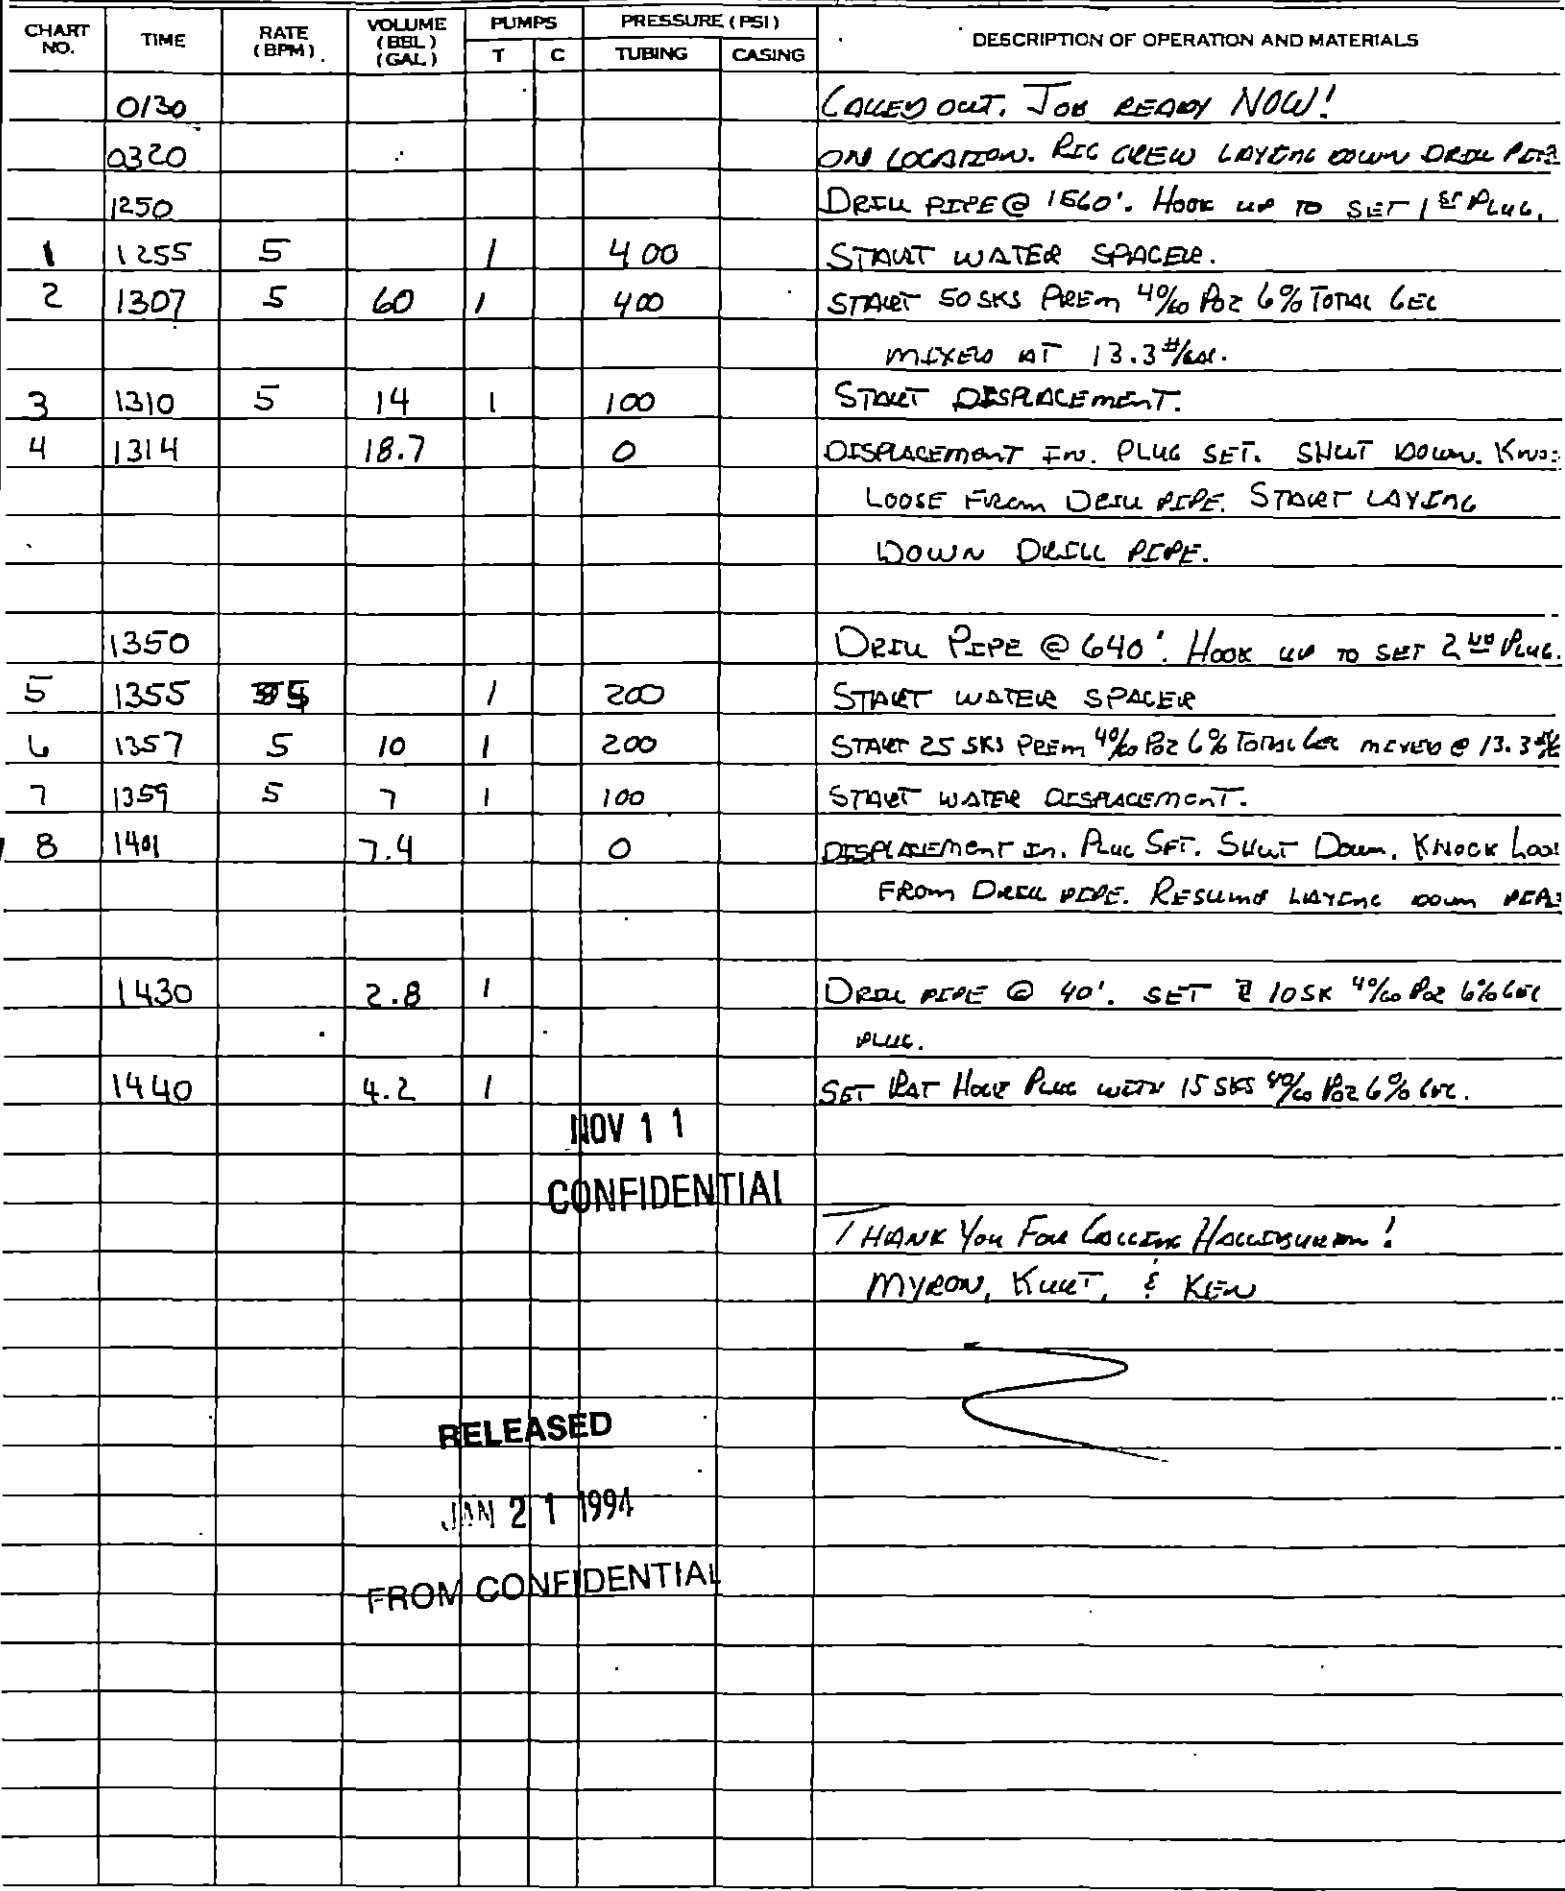 CHART NO. TIME RATE (BPM) VOLUME (BBL) (GAL) PUMPS T C PRESSURE (PSI) TUBING CASING DESCRIPTION OF OPERATION AND MATERIALS
0130 CALLED OUT. JOB READY NOW!
0320 ON LOCATION. RIG CREW LAYING DOWN DRILL PIPE
1250 DRILL PIPE @ 1560'. HOOK UP TO SET 1ST PLUG.
1 1255 5 1 400 START WATER SPACER.
2 1307 5 60 1 400 START 50 SKS PREM 40/60 POZ 6% TOTAL GEL
MIXED AT 13.3 #/GAL.
3 1310 5 14 1 100 START DISPLACEMENT.
4 1314 18.7 0 DISPLACEMENT IN. PLUG SET. SHUT DOWN.
LOOSE FROM DRILL PIPE. START LAYING
DOWN DRILL PIPE.
1350 DRILL PIPE @ 640'. HOOK UP TO SET 2ND PLUG.
5 1355 5 1 200 START WATER SPACER
6 1357 5 10 1 200 START 25 SKS PREM 40/60 POZ 6% TOTAL GEL MIXED @ 13.3 #/G
7 1359 5 7 1 100 START WATER DISPLACEMENT.
8 1401 7.4 0 DISPLACEMENT IN. PLUG SET. SHUT DOWN. KNOCK LOOS
FROM DRILL PIPE. RESUME LAYING DOWN PIPE
1430 2.8 1 DRILL PIPE @ 40'. SET 10 SK 40/60 POZ 6% GEL
PLUG.
1440 4.2 1 SET RAT HOLE PLUG WITH 15 SKS 40/60 POZ 6% GEL.
NOV 11
CONFIDENTIAL
THANK YOU FOR CALLING HALLIBURTON!
MYRON, KURT, & KEN
RELEASED
JAN 21 1994
FROM CONFIDENTIAL